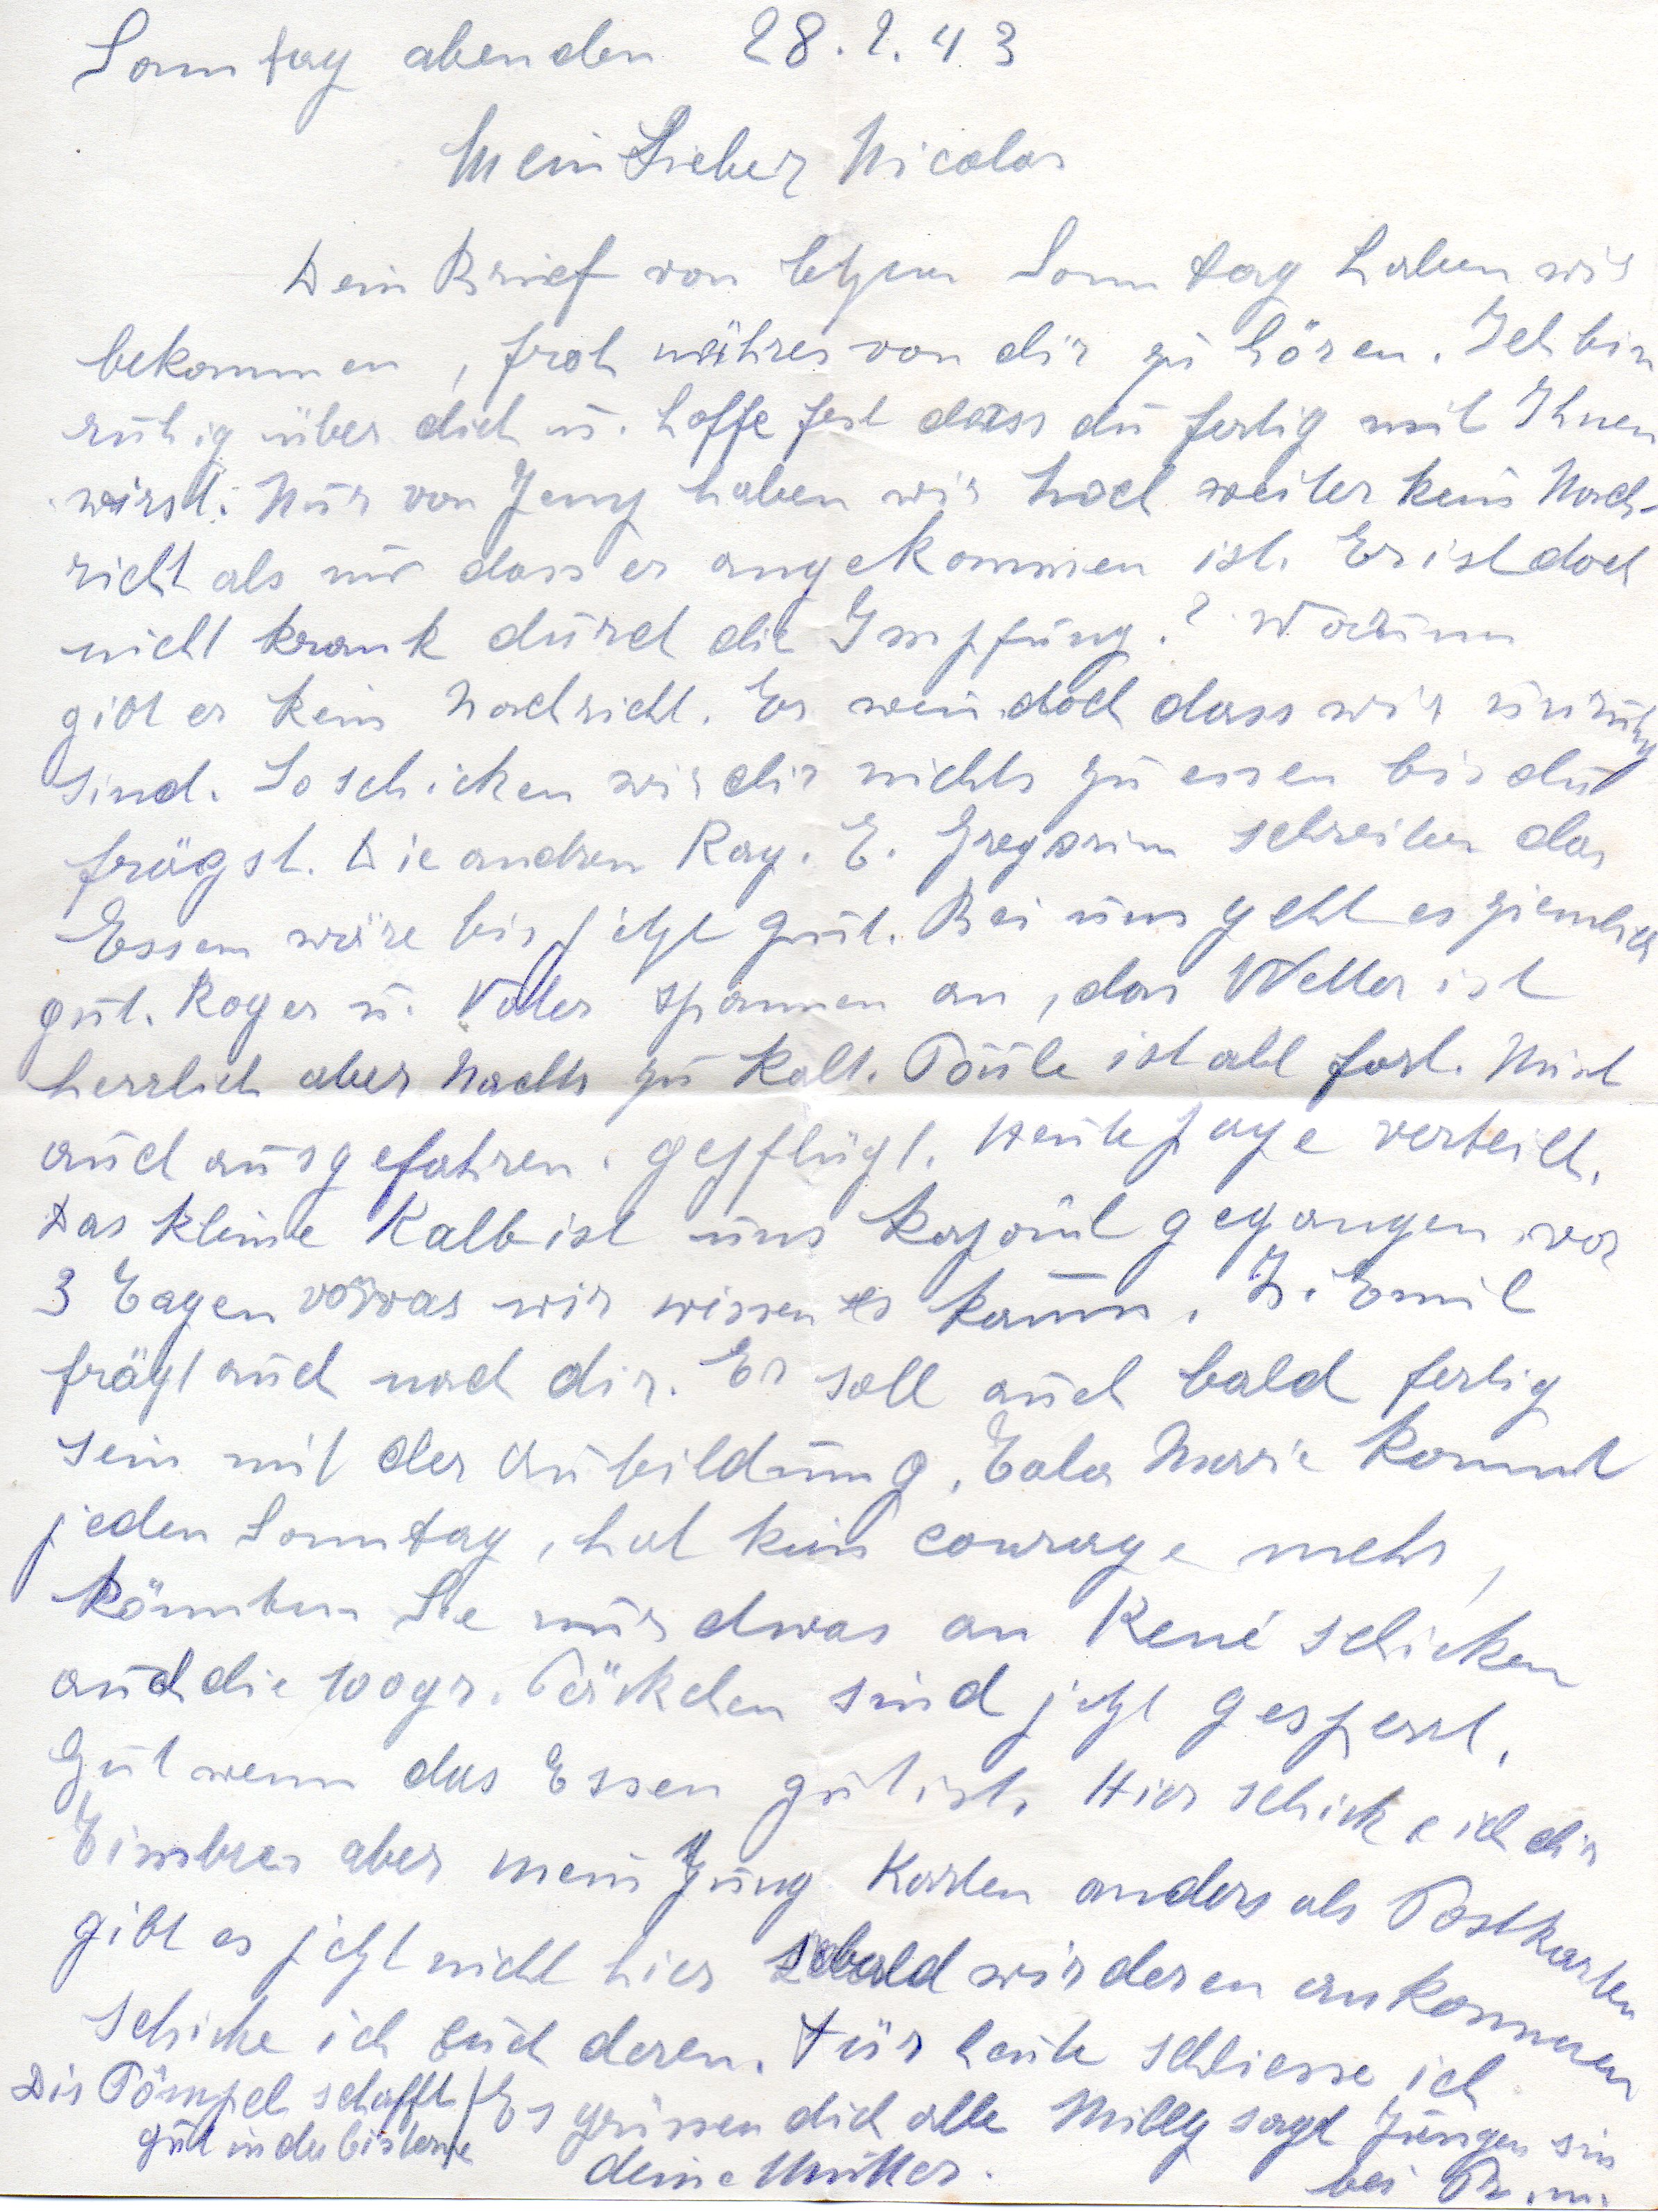 Sonntag abenden 28.2.43
Mein Lieber Nicolas
Dein Brief von letzem Sonntag haben wir
bekommen, froh nähres von dir zu hören. Ich bin
ruhig über dich u. hoffe fest dass du fertig mit Ihnen
wirst. Nur von Jeny haben wir noch weiter kein Nach-
richt als nur dass er angekommen ist. Er ist doch
nicht krank durch die Impfung.? Warum
gibt er kein Nachricht. Er weis doch dass wir unruhig
sind. So schicken wir dir nichts zu essen bis du
frägst. Die andren Ray. E. schreiben das
Essen wäre bis jetzt gut. Bei uns geht es ziemlich
gut. Roger u. Vater spannen an, das Wetter ist
herrlich aber Nachts zu kalt. ist all fort. Mist
auch ausgefahren. gepflügt. Heute verteilt.
Das kleine Kalb ist uns kaput gegangen vor
3 Tagen was wir wissen es kaum. Emil
frägt auch nach dir. Er soll auch bald fertig
sein mit der Aubildung. Marie kommt
jeden Sonntag, hat kein courage mehr,
könnten Sie nur etwas an René schicken
auch die 100gr. Päckchen sind jetzt gesperrt.
Gut wenn das Essen gut ist. Hier schicke ich dir
Timbres aber mein Jung Karten anders als Postkarten
gibt es jetzt nicht hier sobald wir deren ankommen
schicke ich euch deren. Für heute schliesse ich
Es grüssen dich alle Milly sagt
Die schafft
gut in der
deine Mutter.
bei